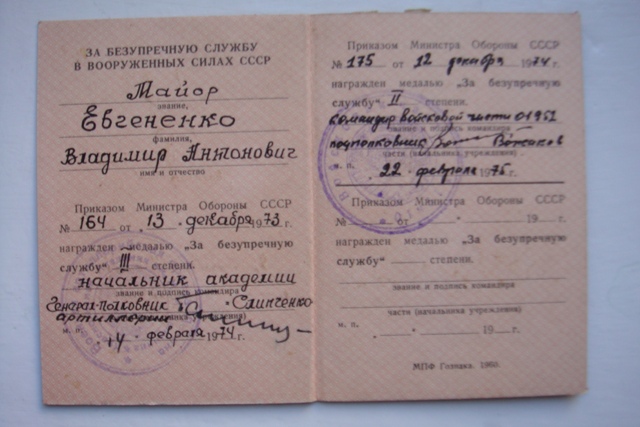 ЗА БЕЗУПРЕЧНУЮ СЛУЖБУ
В ВООРУЖЕННЫХ СИЛАХ СССР
Майор
звание,
Евгененко
фамилия,
Владимир Антонович
имя и отчество
Приказом Министра Обороны СССР
№ 164 от 13 декабря 1973 г.
награжден медалью „За безупречную
службу" III степени.
начальник академии
звание и подпись командира
Генерал-полковник Слипченко
артиллерии
м. п.
14 февраля 1974 г.
Приказом Министра Обороны СССР
№ 175 от 12 декабря 1974 г.
награжден медалью „За безупречную
службу" II степени.
командир войсковой части 01952
звание и подпись командира
подполковник Вожаков
части (начальника учреждения)
м. п.
22 февраля 1975 г.
Приказом Министра Обороны СССР
№ от 19 г.
награжден медалью „За безупречную
службу" степени.
звание и подпись командира
части (начальника учреждения)
м. п. 19 г.
МПФ Гознака. 1960.